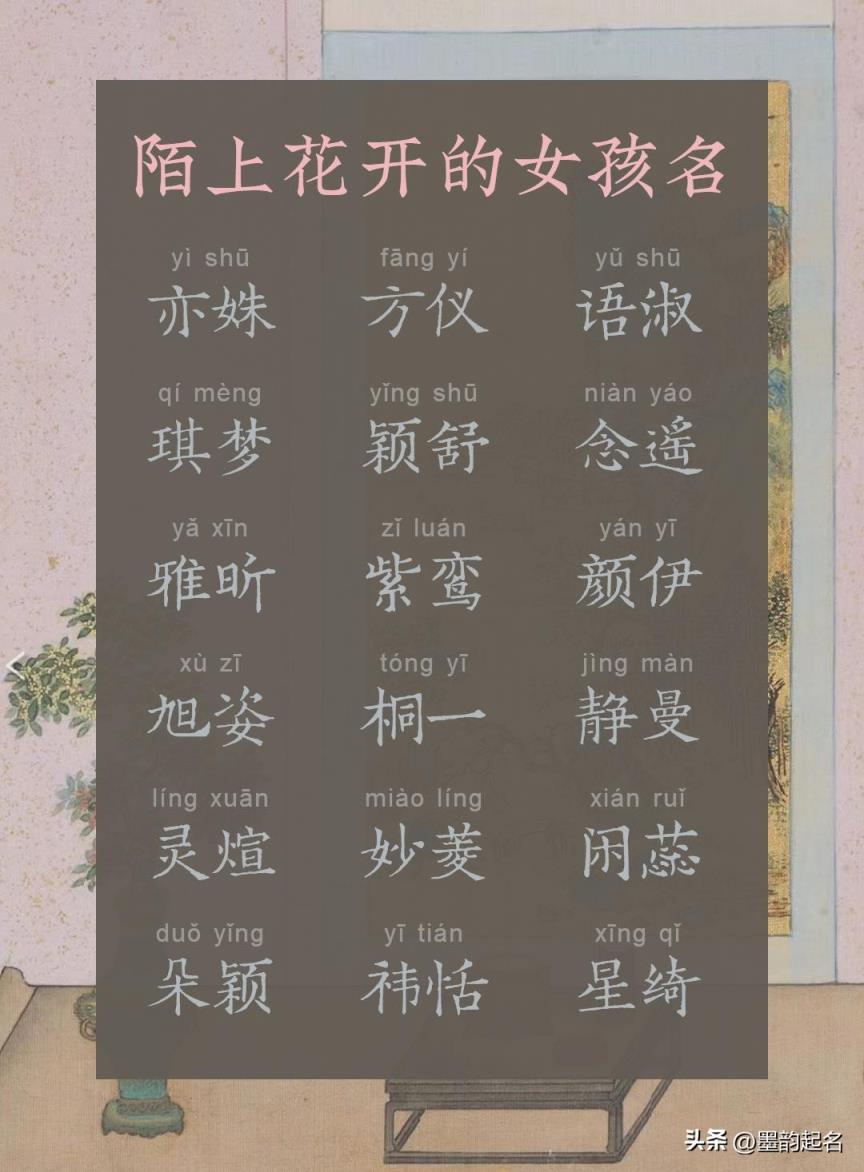 陌上花开的女孩名
yì shū fāng yí yǔ shū
亦姝 方仪 语淑
qí mèng yǐng shū niàn yáo
琪梦 颖舒 念遥
yǎ xīn zǐ luán yán yī
雅昕 紫鸾 颜伊
xù zī tóng yī jìng màn
旭姿 桐一 静曼
líng xuān miào líng xián ruǐ
灵煊 妙菱 闲蕊
duǒ yǐng yī tián xīng qǐ
朵颖 祎恬 星绮
头条 @墨韵起名